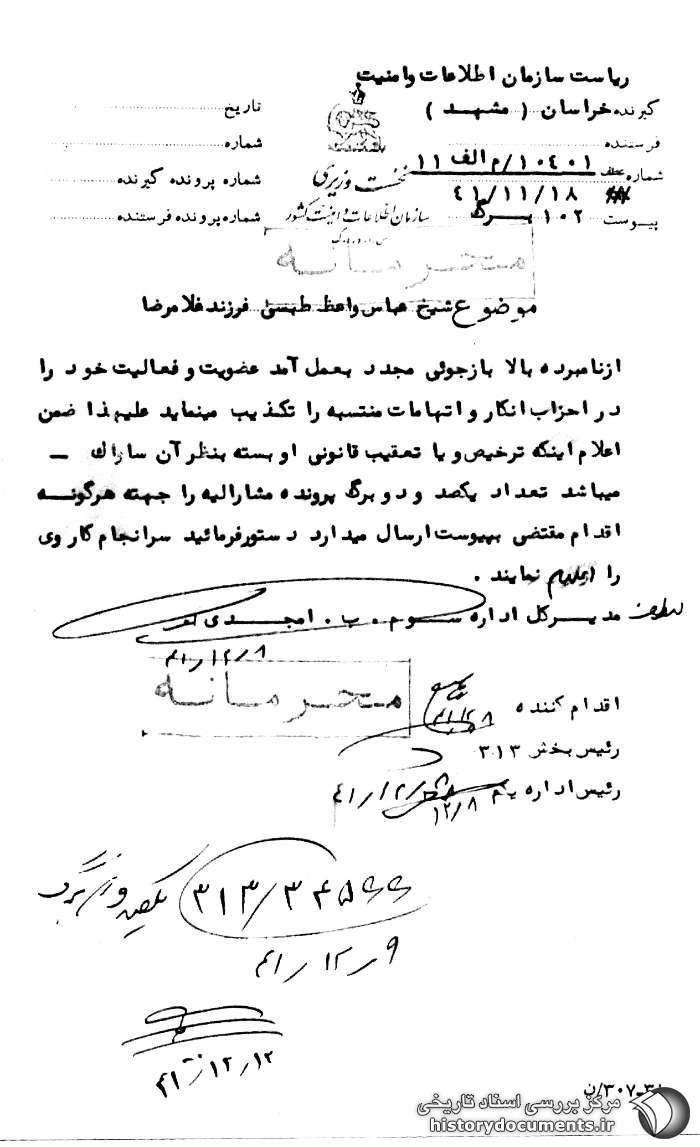 ریاست سازمان اطلاعات وامنیت
گیرنده خراسان ( مشهد )
تاریخ
فرستنده
شماره
شماره عطف ۱۰۴۰۱/م الف ۱۱
نخست وزیری
شماره پرونده گیرنده
۴۱/۱۱/۱۸
سازمان اطلاعات و امنیت کشور
شماره پرونده فرستنده
پیوست ۱۰۲ برگ
س.ا.و.ا.ک
محرمانه
موضوع شیخ عباس واعظ طبسی فرزند غلامرضا
ازنامبرده بالا بازجوئی مجدد بعمل آمد عضویت و فعالیت خود را
در احزاب انکار و اتهامات منتسبه را تکذیب مینماید علیهذا ضمن
اعلام اینکه ترخیص و یا تعقیب قانونی او بسته بنظر آن ساواک –
میباشد تعداد یکصد و دو برگ پرونده مشارالیه را جهته هرگونه
اقدام مقتضی بپیوست ارسال میدارد دستور فرمائید سرانجام کار وی
را اعلام نمایند .
مدیرکل اداره سوم . ب . امجدی
۴۱/۱۲/۸
محرمانه
اقدام کننده
۴۱/۱۲/۸
رئیس بخش ۳۱۳
رئیس اداره یکم
۴۱/۱۲/۸
۱۲/۸
۳۱۳/۳۴۵۶۶
۴۱/۱۲/۹
۴۱/۱۲/۱۲
۳۰۷-۳۱/ن
مرکز بررسی اسناد تاریخی
historydocuments.ir